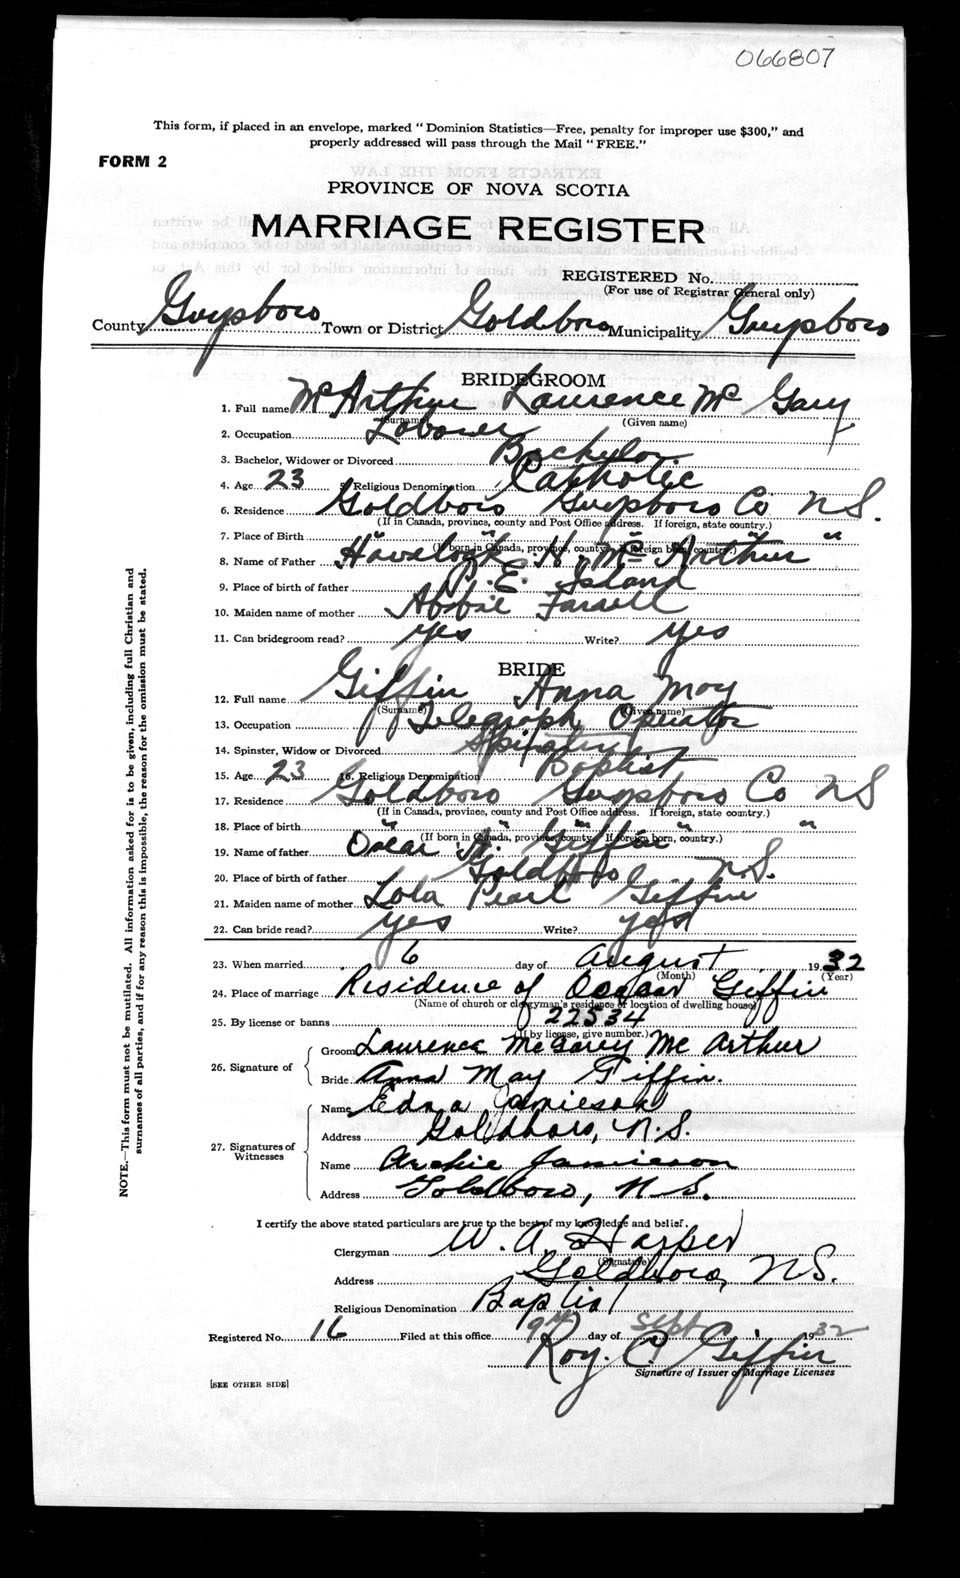 066807
This form, if placed in an envelope, marked "Dominion Statistics—Free, penalty for improper use $300," and
properly addressed will pass through the Mail "FREE."
FORM 2
PROVINCE OF NOVA SCOTIA
MARRIAGE REGISTER
REGISTERED No.
(For use of Registrar General only)
County Guysboro Town or District Goldboro Municipality Guysboro
BRIDEGROOM
1. Full name McArthur Laurence Mc Gary
(Surname) (Given name)
2. Occupation Laborer
3. Bachelor, Widower or Divorced Bachelor
4. Age 23 5. Religious Denomination Catholic
6. Residence Goldboro Guysboro Co NS.
(If in Canada, province, county and Post Office address. If foreign, state country.)
7. Place of Birth " " " "
(If born in Canada, province, county. If foreign born, country.)
8. Name of Father Havelock H. McArthur
9. Place of birth of father P. E. Island
10. Maiden name of mother Abbie Farrell
11. Can bridegroom read? yes Write? yes
BRIDE
12. Full name Giffin Anna May
(Surname) (Given name)
13. Occupation Telegraph Operator
14. Spinster, Widow or Divorced Spinster
15. Age 23 16. Religious Denomination Baptist
17. Residence Goldboro Guysboro Co NS
(If in Canada, province, county and Post Office address. If foreign, state country.)
18. Place of birth " " " " "
(If born in Canada, province, county. If foreign born, country.)
19. Name of father Oscar Giffin
20. Place of birth of father Goldboro N.S.
21. Maiden name of mother Lola Pearl Giffin
22. Can bride read? yes Write? yes
23. When married 6 day of August 1932
(Month) (Year)
24. Place of marriage Residence of Oscar Giffin
(Name of church or clergyman's residence or location of dwelling house)
25. By license or banns 22534
(If by license, give number.)
26. Signature of
Groom Laurence McGarey McArthur
Bride Anna May Giffin.
27. Signatures of Witnesses
Name Edna Jamieson
Address Goldboro, N.S.
Name Archie Jamieson
Address Goldboro, N.S.
I certify the above stated particulars are true to the best of my knowledge and belief.
Clergyman W. A. Harper
(Signature)
Address Goldboro, NS.
Religious Denomination Baptist
Registered No. 16 Filed at this office 9th day of Sept 1932
Roy. C. Giffin
Signature of Issuer of Marriage Licenses
[SEE OTHER SIDE]
NOTE.—This form must not be mutilated. All information asked for is to be given, including full Christian and
surnames of all parties, and if for any reason this is impossible, the reason for the omission must be stated.